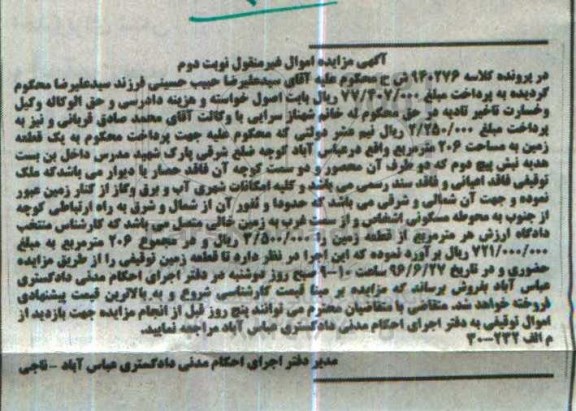 آگهی مزایده اموال غیرمنقول نوبت دوم
در پرونده کلاسه ۹۴۰۲۷۶ ش ح محکوم علیه آقای سیدعلیرضا حبیب حسینی فرزند سیدعلیرضا محکوم
گردیده به پرداخت مبلغ ۷۷/۴۰۷/۰۰۰ ریال بابت اصول خواسته و هزینه دادرسی و حق الوکاله وکیل
وخسارت تاخیر تادیه در حق محکوم له خانم مهناز سرابی با وکالت آقای محمد صادق قربانی و نیز به
پرداخت مبلغ ۲/۲۵۰/۰۰۰ ریال نیم عشر دولتی که محکوم علیه جهت پرداخت محکوم به یک قطعه
زمین به مساحت ۲۰۶ مترمربع واقع درعباس آباد کوچه ضلع شرقی پارک شهید مدرس داخل بن بست
هدیه نبش پیچ دوم که دو طرف آن محصور و دو سمت کوچه آن فاقد حصار یا دیوار می باشدکه ملک
توقیفی فاقد اعیانی و فاقد سند رسمی می باشد و کلیه امکانات شهری آب و برق وگاز از کنار زمین عبور
نموده و جهت آن شمالی و شرقی می باشد که حدودا و ثغور آن از شمال و شرق به راه ارتباطی کوچه
از جنوب به محوطه مسکونی اشخاص و از سمت غرب به زمین خالی متصل می باشد که کارشناس منتخب
دادگاه ارزش هر مترمربع از قطعه زمین را ۳/۵۰۰/۰۰۰ ریال و در مجموع ۲۰۶ مترمربع به مبلغ
۷۲۱/۰۰۰/۰۰۰ ریال برآورد نموده که این اجرا در نظر دارد تا قطعه زمین توقیفی را از طریق مزایده
حضوری و در تاریخ ۹۶/۶/۲۷ ساعت ۱۰-۹ صبح روز دوشنبه در دفتر اجرای احکام مدنی دادگستری
عباس آباد بفروش برساند که مزایده بر مبنا قیمت کارشناسی شروع و به بالاترین قیمت پیشنهادی
فروخته خواهد شد. متقاضی یا متقاضیان محترم می توانند پنج روز قبل از انجام مزایده جهت بازدید از
اموال توقیفی به دفتر اجرای احکام مدنی دادگستری عباس آباد مراجعه نمایید.
م الف ۲۳۲-۳۰
مدیر دفتر اجرای احکام مدنی دادگستری عباس آباد - ناجی